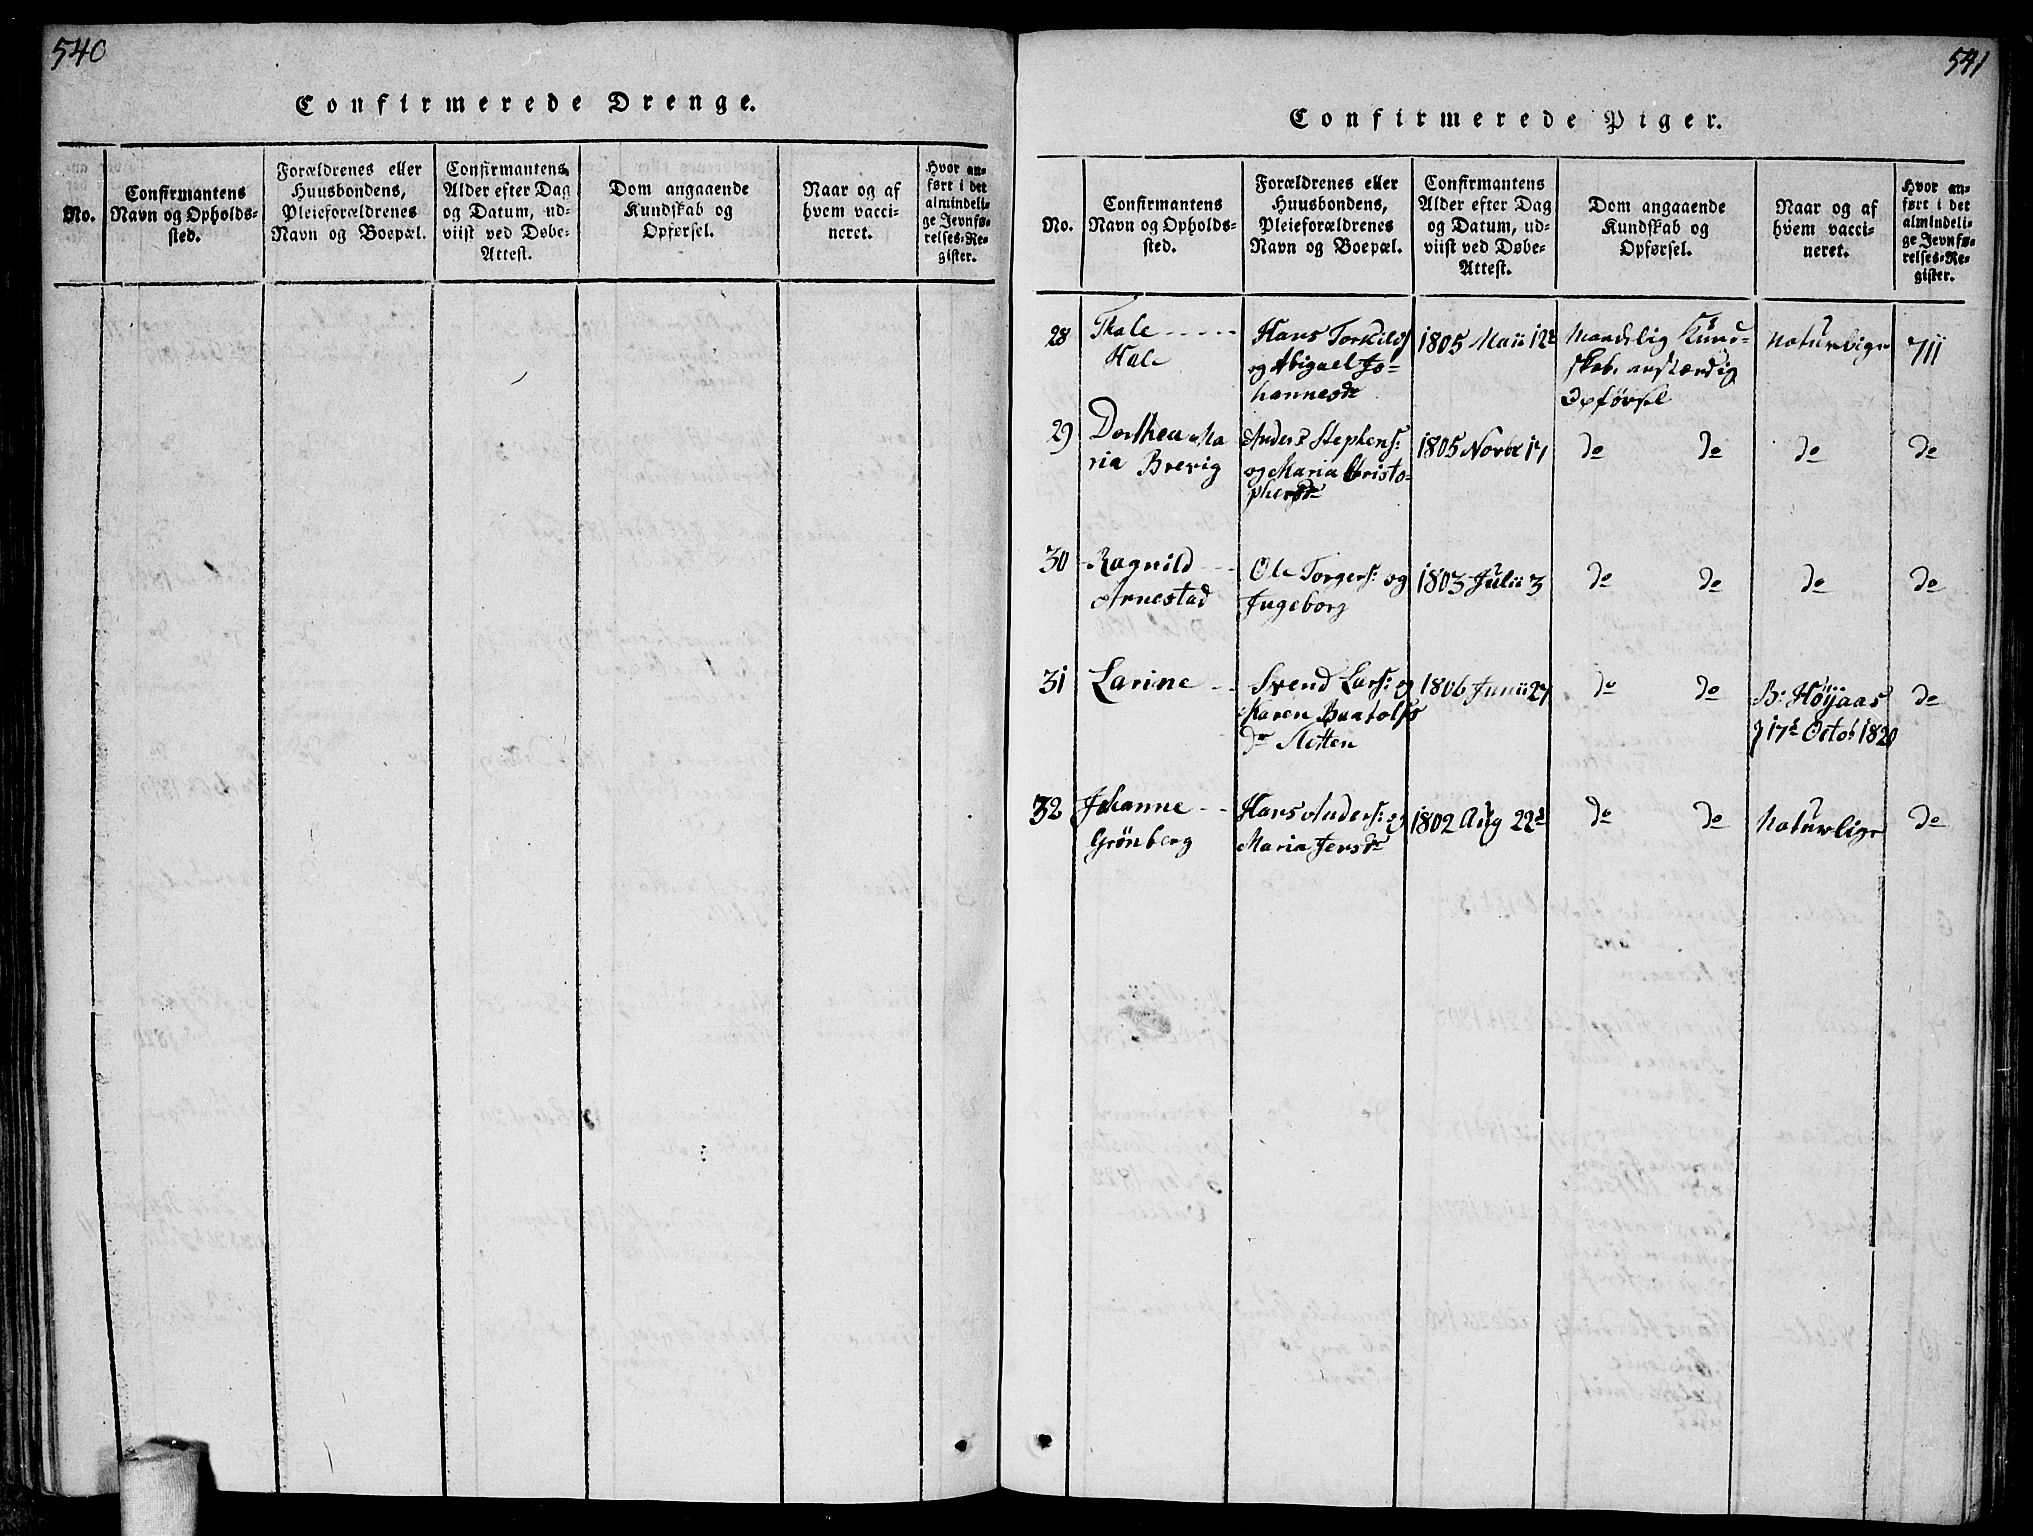 540
Confirmerede Drenge.
No.
Confirmantens
Navn og Opholds-
sted.
Forældrenes eller
Huusbondens,
Pleieforældrenes
Navn og Boepæl.
Confirmantens
Alder efter Dag
og Datum, ud-
viist ved Døbe-
Attest.
Dom angaaende
Kundskab og
Opførsel.
Naar og af
hvem vacci-
neret.
Hvor an-
ført i det
almindeli-
ge Jevnfø-
relses-Re-
gister.
541
Confirmerede Piger.
No.
Confirmantens
Navn og Opholds-
sted.
Forældrenes eller
Huusbondens,
Pleieforældrenes
Navn og Boepæl.
Confirmantens
Alder efter Dag
og Datum, ud-
viist ved Døbe-
Attest.
Dom angaaende
Kundskab og
Opførsel.
Naar og af
hvem vacci-
neret.
Hvor an-
ført i det
almindeli-
ge Jevnfø-
relses-Re-
gister.
28
Thale
Hole
Hans Torkilds
og Abigael Jo-
hannesdr
1805 Maii 12
Maadelig Kund-
skab, anstændig
Opførsel
Naturlige
711
29
Dorthea Ma
ria Brevig
Anders Stephens:
og Maria Christo-
phersdr
1805 Novbr 17
do do
do
do
30
Ragnild
Arnestad
Ole Torgers: og
Ingeborg
1803 Julii 3
do do
do
do
31
Larine
Svend Lars: og
Karen Buntolfs
dr Sletten
1806 Junii 27
do do
B: Höijaas
d 17d Octob 1820
do
32
Johanne
Grönberg
Hans Anders: og
Maria Jensdr
1802 Aug 22d
do do
Naturlige
do